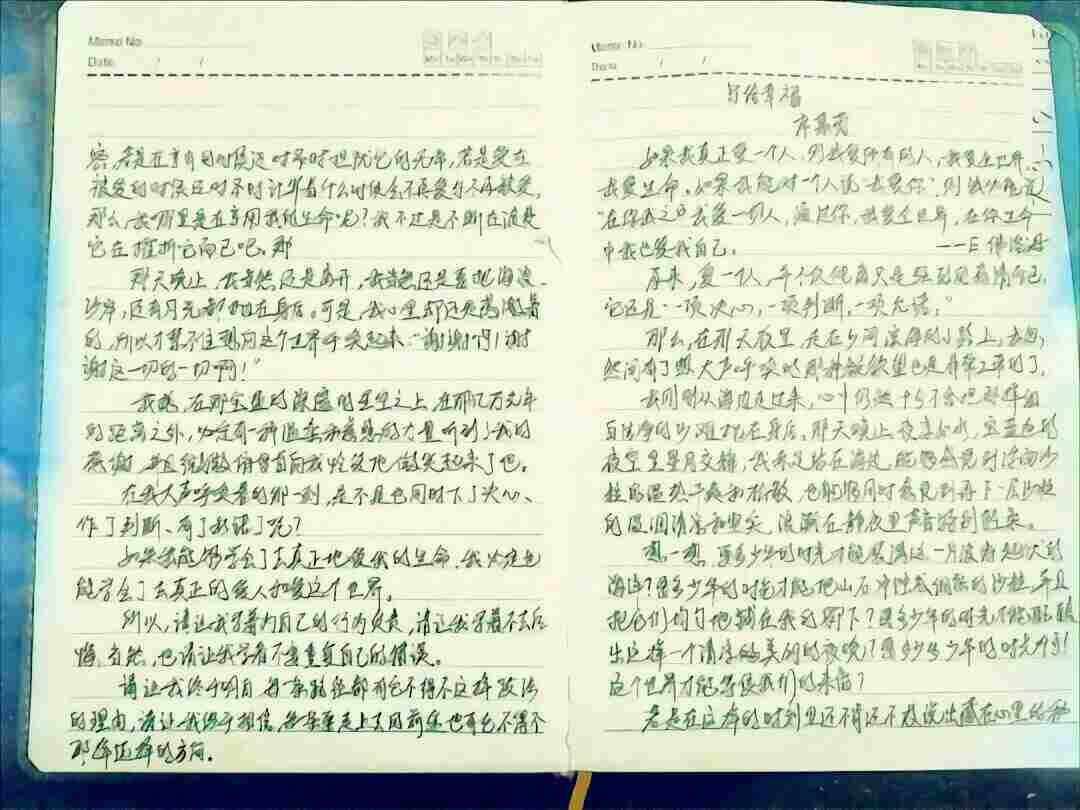 Memo No
Date / /
容,若是在享有的时候还时时担忧它的无常,若是爱在
被爱的时候还时时计算着什么时候会不再爱与不再被爱,
那么,我哪里是在享用我的生命呢?我不过是不断在浪费
它在摧折它而已吧。那
那天晚上,我当然还是离开,我当然还是要把海浪、
沙岸,还有月光都抛在身后。可是,我心里却还是感激着
的,所以才禁不住想向这个世界呼唤起来:“谢谢啊!谢
谢这一切的一切啊!”
我想,在那宝蓝的深邃的星空之上,在那亿万光年
的距离之外,必定有一种温柔和慈悲的力量听到了我的
感谢,并且微微俯首向我怜爱地微笑起来了吧。
在我大声呼唤着的那一刻,是不是也同时下了决心、
作了判断、有了承诺了呢?
如果我能够学会了去真正地爱我的生命,我必定也
能学会了去真正的爱人和爱这个世界。
所以,请让我学着为自己的行为负责,请让我学着不去后
悔。当然,也请让我学着不要重复自己的错误。
请让我终于明白,每条路径都有它不得不这样跋涉
的理由,请让我终于相信,每条要走上去的前途也有它不得不
那样选择的方向。
Memo No
Date / /
写给幸福
席慕蓉
如果我真正爱一个人,则我爱所有的人,我爱全世界,
我爱生命。如果我能对一个人说“我爱你”,则我必能说
“在你之中我爱一切人,通过你,我爱全世界,在你生命
中我也爱我自己。 ——E·佛洛姆
原来,爱一个人,并不仅仅只是强烈的感情而已,
它还是“一项决心,一项判断,一项允诺。”
那么,在那天夜里,走在乡间滨海的小路上,我忽
然间有了想大声呼唤的那种欲望也是非常正常的了。
我刚刚从海边走过来,心中仍然十分不舍把那样细
白洁净的沙滩抛在身后。那天晚上夜凉如水,宝蓝色的
夜空里星月交辉,我赤足站在海边,能够感觉到浮面沙
粒的温热干爽和松散,也能够同时感觉到再下一层沙粒
的湿润清凉和坚实,浪潮在静夜里声音特别轻柔。
想一想,要多少年的时光才能装满这一片波涛起伏的
海洋?要多少年的时光才能把山石冲蚀成细柔的沙粒,并且
把它们均匀地铺在我的脚下?要多少年的时光才能酝酿
出这样一个清凉的美丽的夜晚?要多少多少年的时光啊!
这个世界才能等候我们的来临?
若是在这样的时刻里还不肯还不敢说出藏在心里的